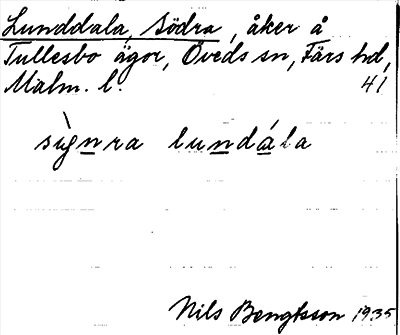 Lunddala, Södra, åker å
Tullesbo ägor, Öveds sn, Färs hd,
Malm. l. 41
sìgnra lundála
Nils Bengtsson 1935